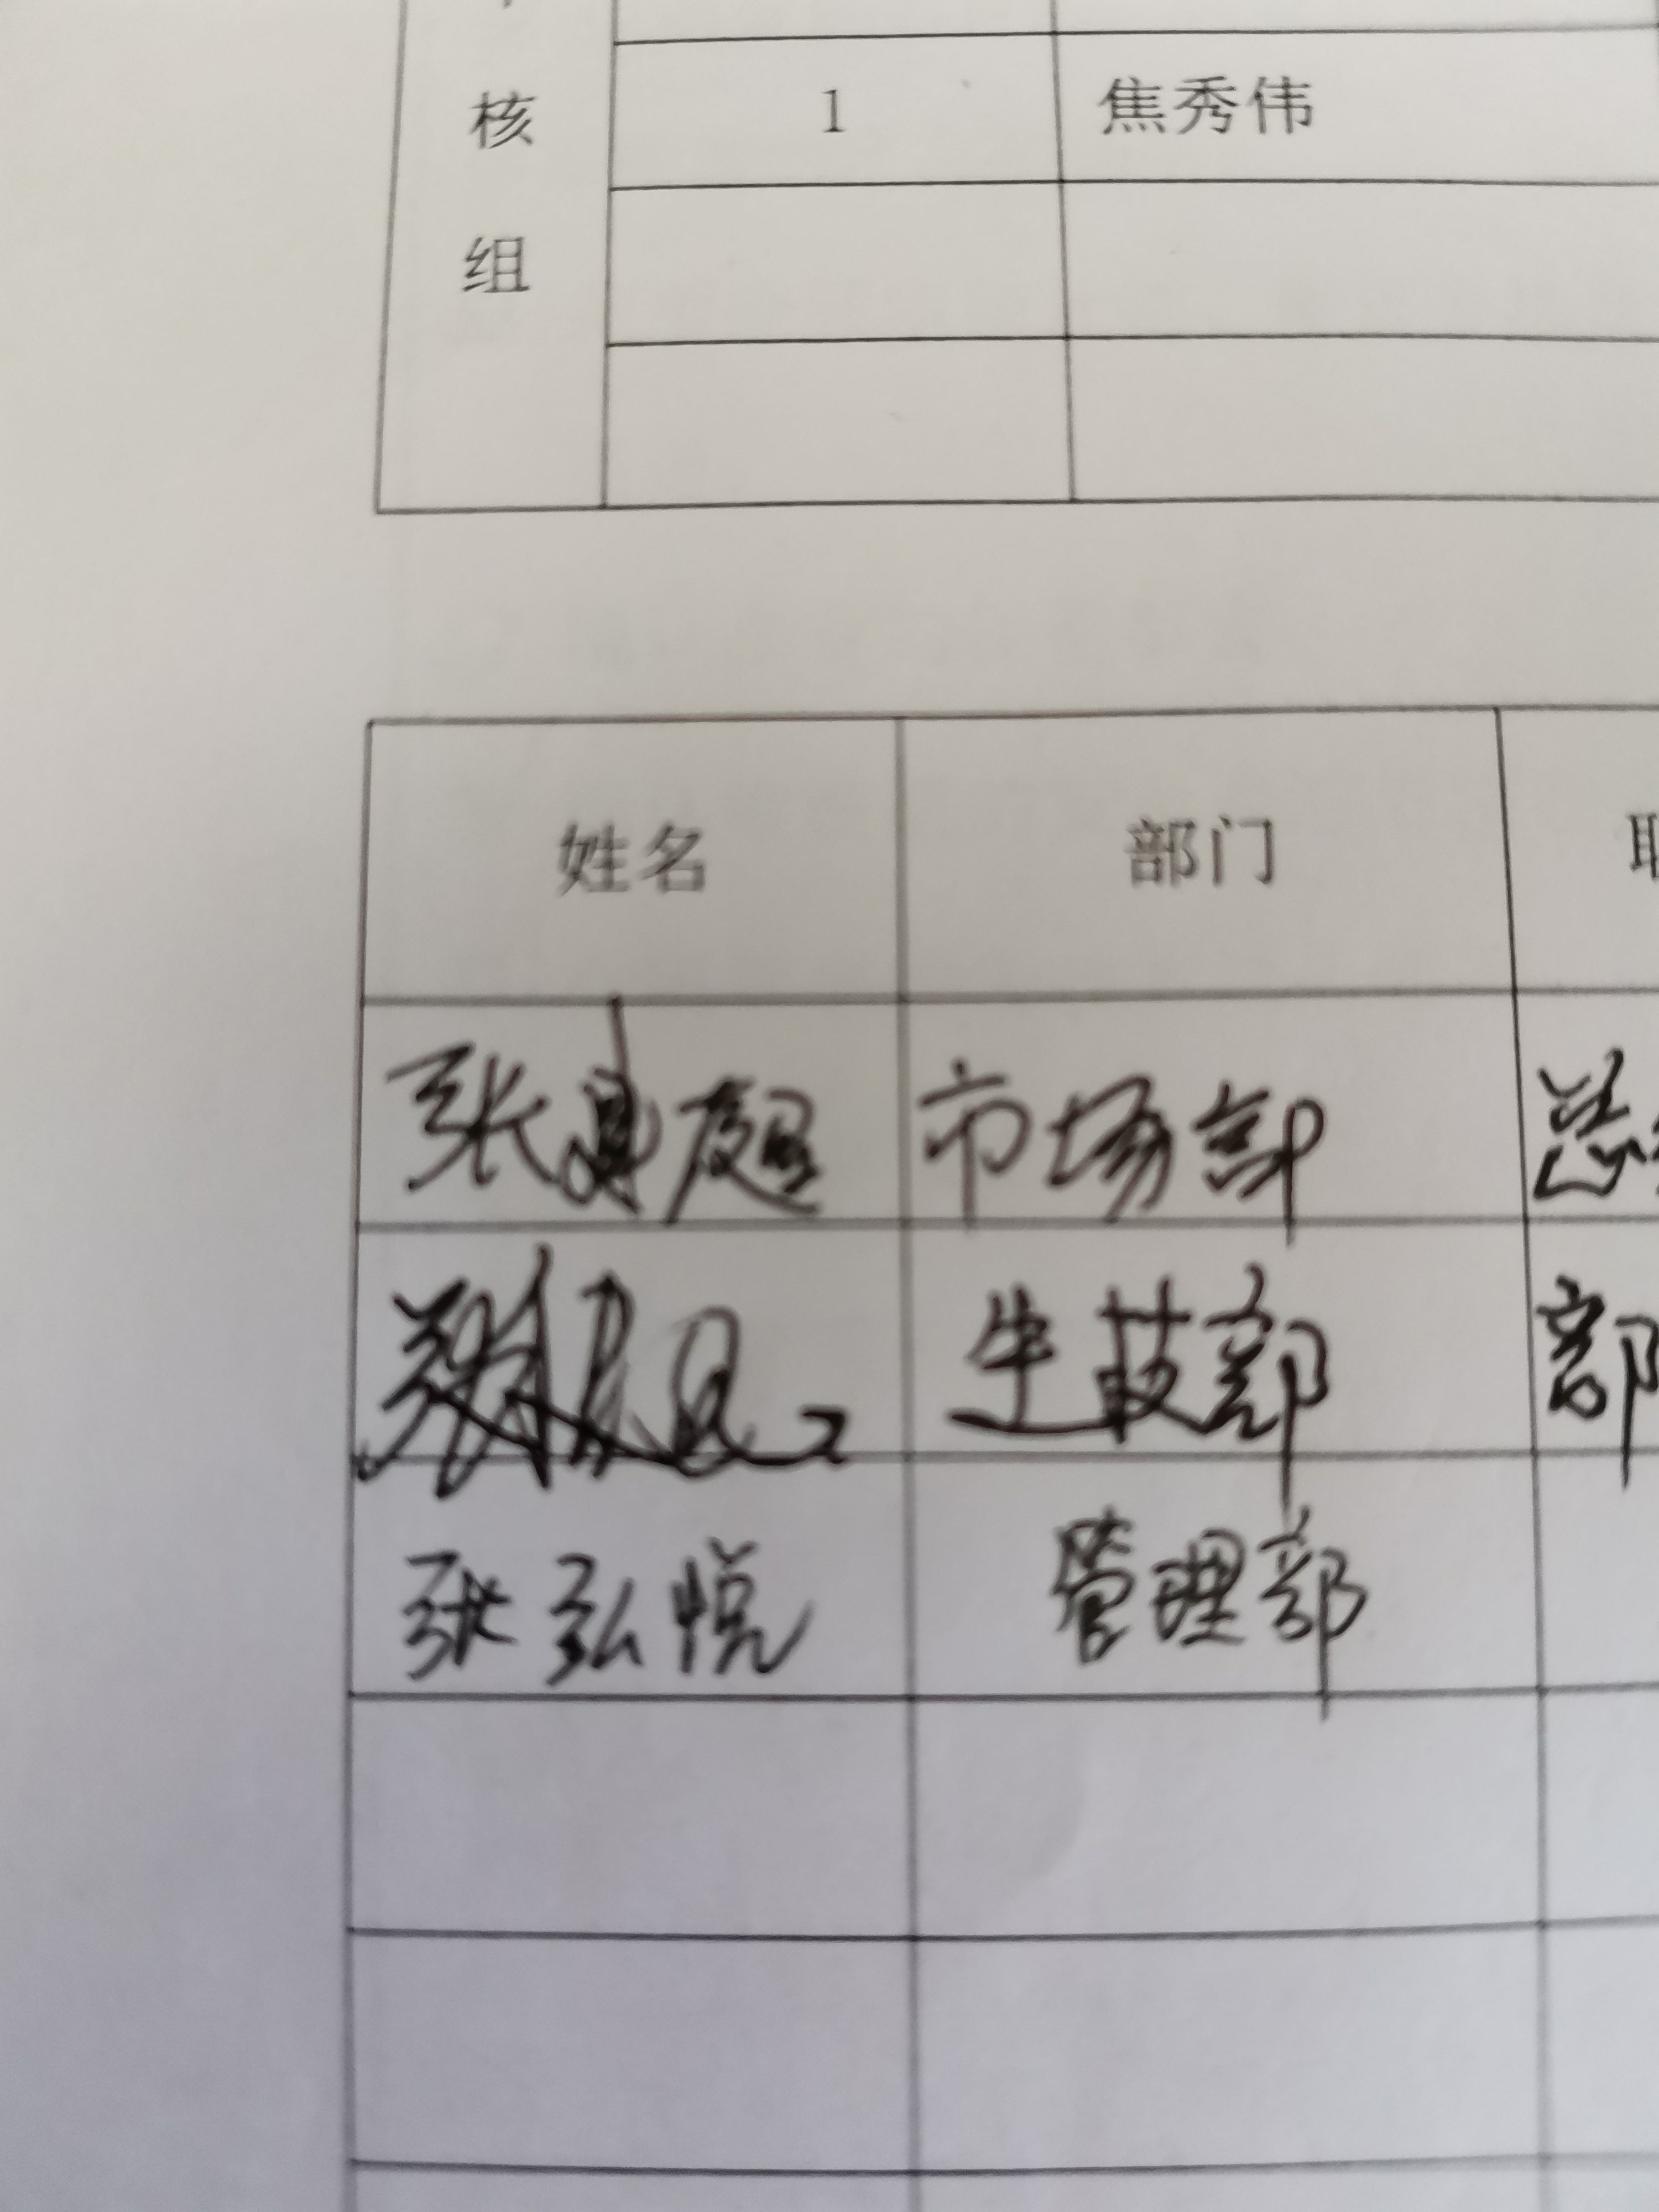 核
1 焦秀伟
组
姓名 部门
张 市场部 总
生技部 部
张弘悦 管理部